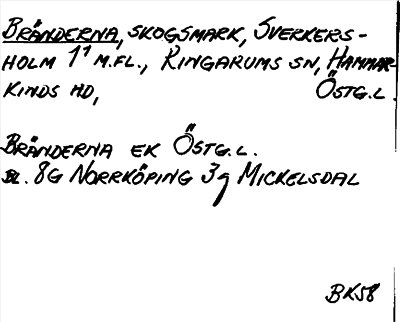 BRÄNDERNA, SKOGSMARK, SVERKERS-
HOLM 1¹ M.FL., RINGARUMS SN, HAMMAR-
KINDS HD, ÖSTG.L.
BRÄNDERNA EK ÖSTG.L.
BL. 8G NORRKÖPING 3g MICKELSDAL
BK58